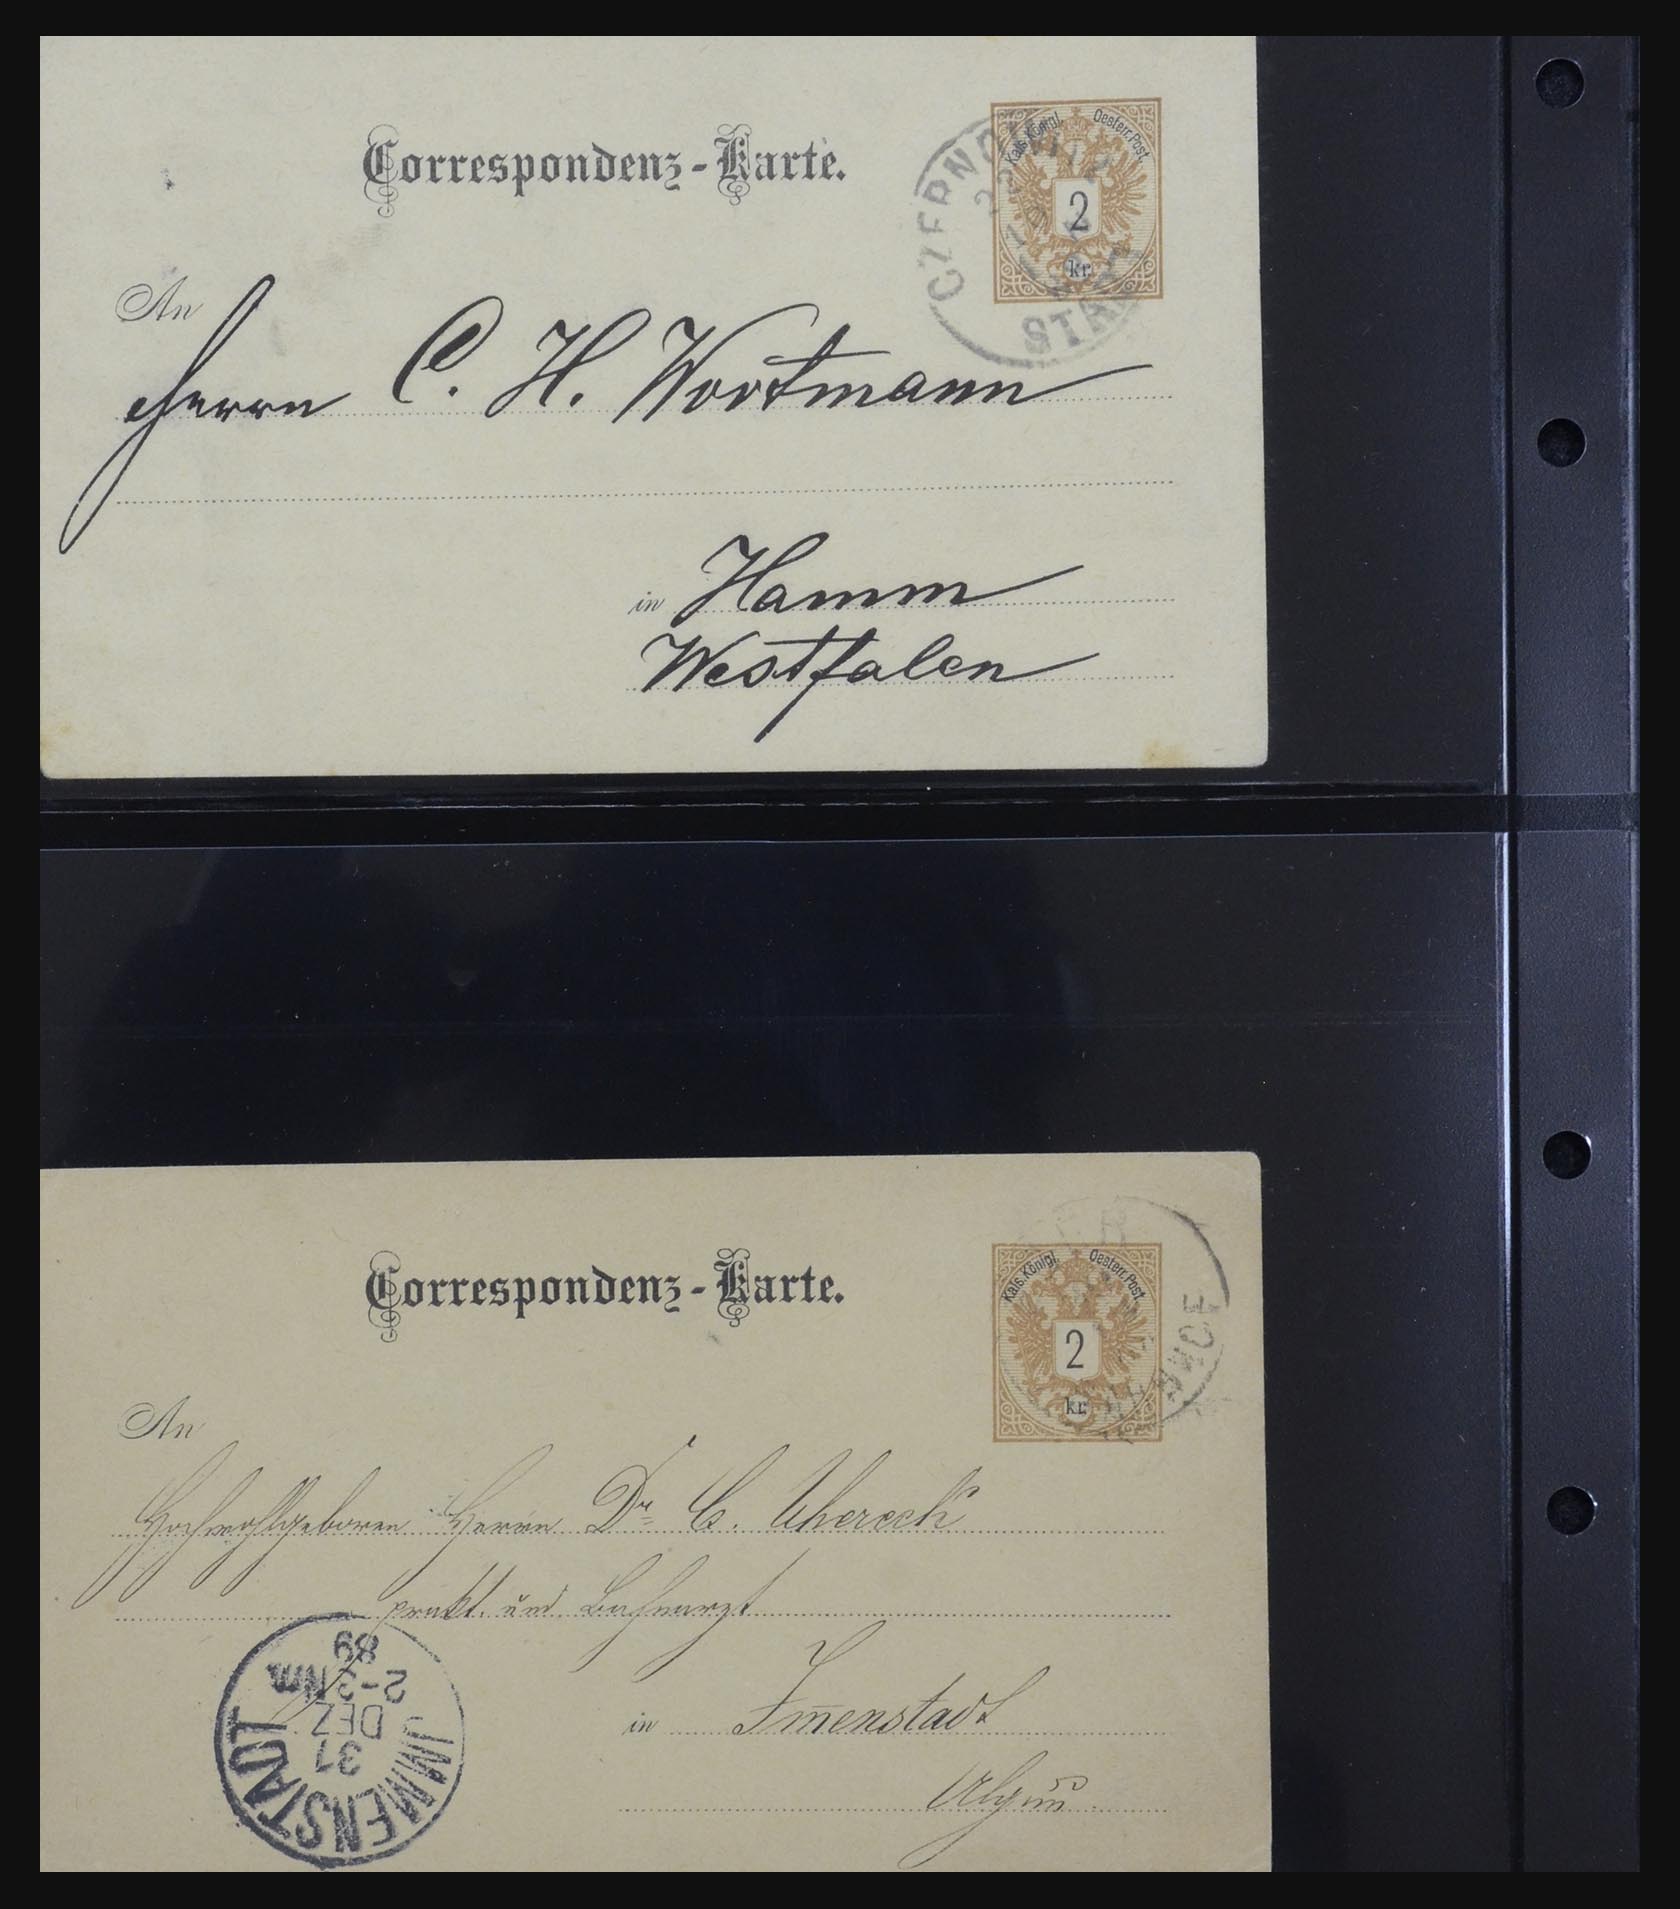 Correspondenz-Karte.
Kais. Königl. Oesterr. Post.
2
kr.
CZERNOWITZ
STADT
An
Herrn C. H. Wortmann
in Hamm
Westfalen
Correspondenz-Karte.
Kais. Königl. Oesterr. Post.
2
kr.
An
Hochwohlgeboren Herrn Dr. C. Ühereck
prakt. und Bahnarzt
in Im̅enstadt
Algäu
IMMENSTADT
31
DEZ
2-3 Nm
89